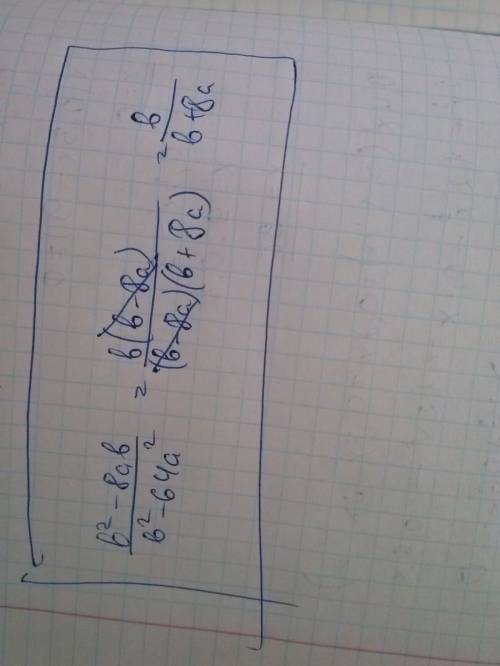 b² - 8ab / b² - 64a² = b(b - 8a) / (b - 8a)(b + 8a) = b / b + 8a